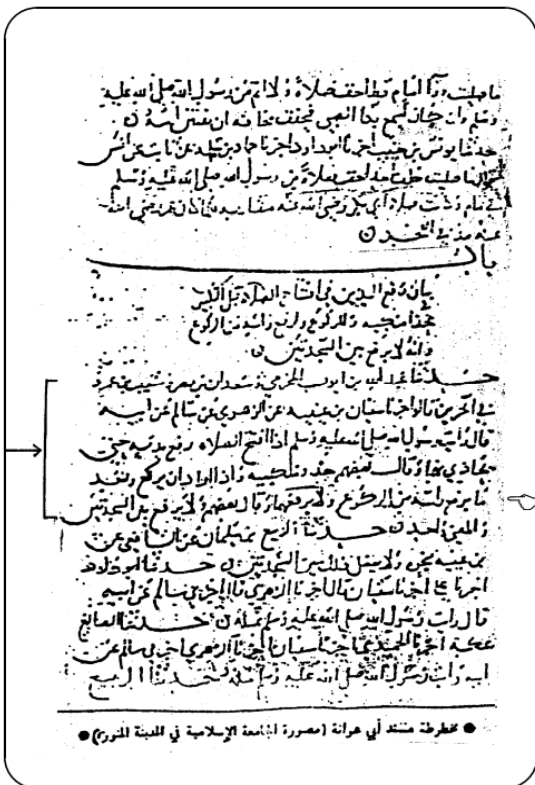 ما صليت وراء امام قط اخف صلاة ولا اتم من رسول الله صلى الله عليه
وسلم وان كان ليسمع بكا الصبي فيخفف مخافة ان تفتتن امه
حدثنا يونس بن حبيب اخبرنا ابو داود اخبرنا حماد بن سلمة عن ثابت عن انس
قال ما صليت خلف احد اخف صلاة من رسول الله صلى الله عليه وسلم
في تمام وكانت صلاة ابي بكر رضي الله عنه متقاربة فلما كان عمر رضي الله
عنه مد في
باب
بيان رفع اليدين في افتتاح الصلاة قبل التكبير
بحذا منكبيه وللركوع ولرفع راسه من الركوع
وانه لا يرفع بين السجدتين
حدثنا عبد الله بن ايوب المخرمي وسعدان بن نصر وشعيب بن عمرو
في اخرين قالوا اخبرنا سفيان بن عيينة عن الزهري عن سالم عن ابيه
قال رايت رسول الله صلى الله عليه وسلم اذا افتتح الصلاة رفع يديه حتى
يحاذي بهما وقال بعضهم حذو منكبيه واذا اراد ان يركع وبعد
ما يرفع راسه من الركوع ولا يرفعهما وقال بعضهم ولا يرفع بين السجدتين
والمعنى واحد حدثنا الربيع بن سليمان عن الشافعي عن
بن عيينة بنحوه ولا يفعل ذلك بين السجدتين حدثنا ابو داود
اخبرنا علي اخبرنا سفيان اخبرنا الزهري اخبرني سالم عن ابيه
قال رايت رسول الله صلى الله عليه وسلم بمثله حدثنا الصائغ
بمكة اخبرنا الحميدي اخبرنا سفيان اخبرنا الزهري اخبرني سالم عن
ابيه رايت رسول الله صلى الله عليه وسلم مثله حدثنا الربيع
● مخطوطة مسند أبي عوانة (مصورة الجامعة الإسلامية في المدينة المنورة) ●